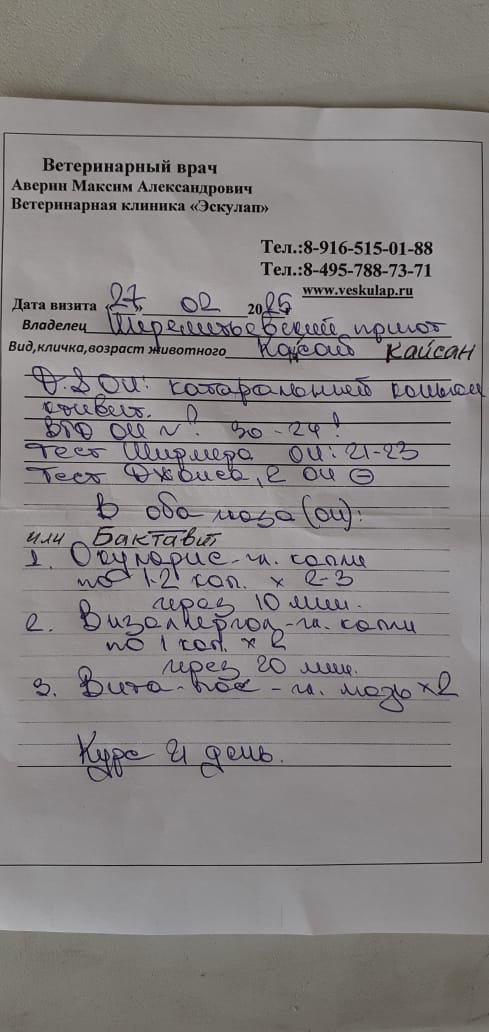 Ветеринарный врач
Аверин Максим Александрович
Ветеринарная клиника «Эскулап»
Тел.:8-916-515-01-88
Тел.:8-495-788-73-71
www.veskulap.ru
Дата визита «27» 02 2025
Владелец Шереметьевский приют
Вид,кличка,возраст животного Кайсан
Д.S OU: катаральный конъюн
ктивит.
ВГД OU N: 30-24!
Тест Ширмера OU: 21-23
Тест Джонса 1,2 OU ⊖
В оба глаза (OU):
или Бактавит
1. Окулорис - гл. капли
по 1-2 кап. x 2-3
через 10 мин.
2. Визаллергол - гл. капли
по 1 кап. x 2
через 20 мин.
3. Вита-пос - гл. мазь x2
Курс 21 день.